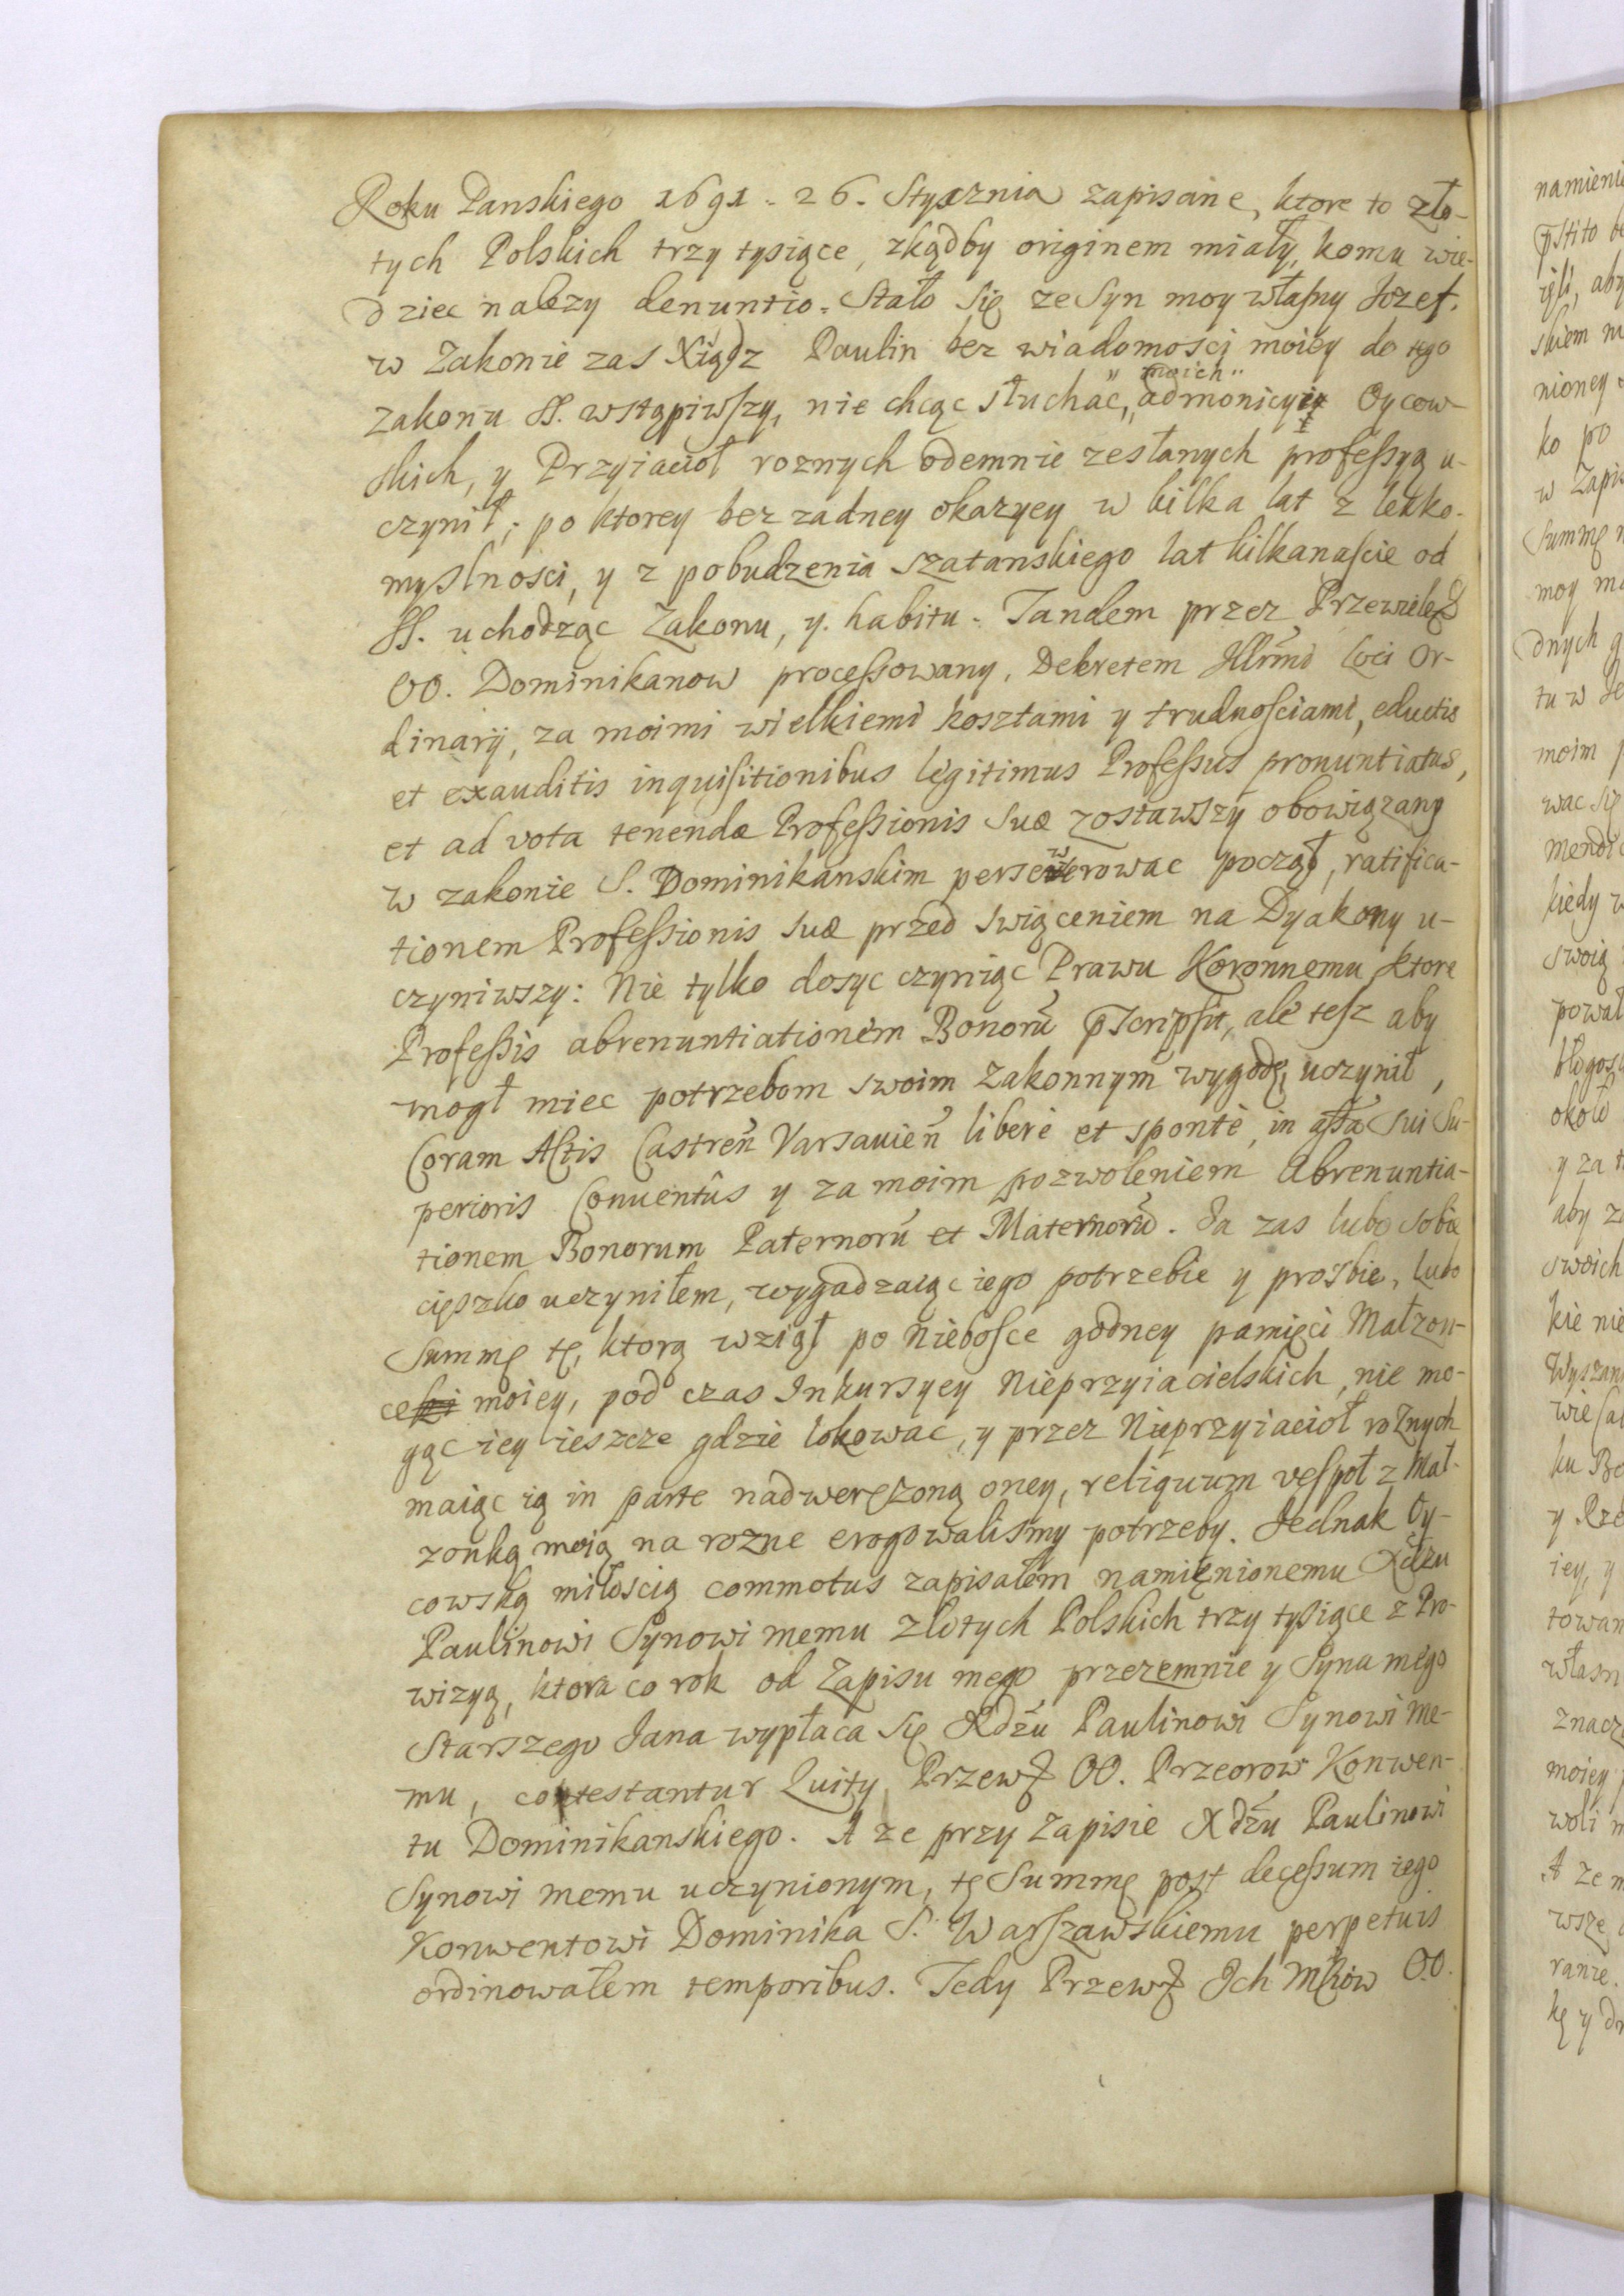 Roku Panskiego 1691. 26. Stycznia zapisane, ktore to zło-
tych Polskich trzy tysiące, zkądby originem miały, komu wie-
dziec nalezy denuntio. Stało się ze Syn moy własny Jozef.
w Zakonie zas Xiądz Paulin bez wiadomosci moiey do tego
zakonu SS. wstąpiwszy, nie chcąc słuchac, moich admonicyi Oycow-
skich, y Przyiacioł roznych odemnie zesłanych professyą u-
czynił; po ktorey bez zadney okazyey w kilka lat z lekko-
myslnosci, y z pobudzenia szatanskiego lat kilkanascie od
SS. uchodząc Zakonu, y habitu. Tandem przez Przewieleb
OO. Dominikanow processowany, Dekretem Illrmi Loci Or-
dinarij, za moimi wielkiemi kosztami y trudnosciami, eductis
et exauditis inquisitionibus legitimus Professus pronuntiatus,
et ad vota tenenda Professionis suæ zostawszy obowiązany
w zakonie S. Dominikanskim persewerowac począł, ratifica-
tionem Professionis suæ przed swięceniem na Dyakony u-
czyniwszy: Nie tylko dosyc czyniąc Prawu Koronnemu ktore
Professis abrenuntiationem Bonorũ p̄scripsit, ale tesz aby
mogł miec potrzebom swoim Zakonnym wygodę, uczynił,
Coram Actis Castreñ Varsavieñ liberè et spontè, in assãa sui Su-
perioris Conuentûs y za moim pozwoleniem Abrenuntia-
tionem Bonorum Paternorũ et Maternorũ. Ja zas lubo sobie
cięszko uczyniłem, wygadzaiąc iego potrzebie y prosbie, lubo
Summę tę, ktorą wziął po Niebosce godney pamięci Małzon-
ce moiey, pod czas Inkursyey Nieprzyiacielskich, nie mo-
gąc iey ieszcze gdzie lokowac, y przez Nieprzyiacioł roznych
maiąc ią in parte nadwerężoną oney, reliquum vespoł z Mał-
zonką moią na rozne erogowalismy potrzeby. Jednak Oy-
cowską miłoscią commotus zapisałem namienionemu Xdzu
Paulinowi Synowi memu złotych Polskich trzy tysiące z Pro-
wizyą, ktora co rok od Zapisu mego przezemnie y Syna mego
Starszego Jana wypłaca się Xdzu Paulinowi Synowi me-
mu, contestantur Quity Przew OO. Przeorow Konwen-
tu Dominikanskiego. A ze przy Zapisie Xdzu Paulinowi
Synowi memu uczynionym, tę Summę post decessum iego
Konwentowi Dominika S. Warszawskiemu perpetuis
ordinowałem temporibus. Tedy Przew Ich Mciow OO.